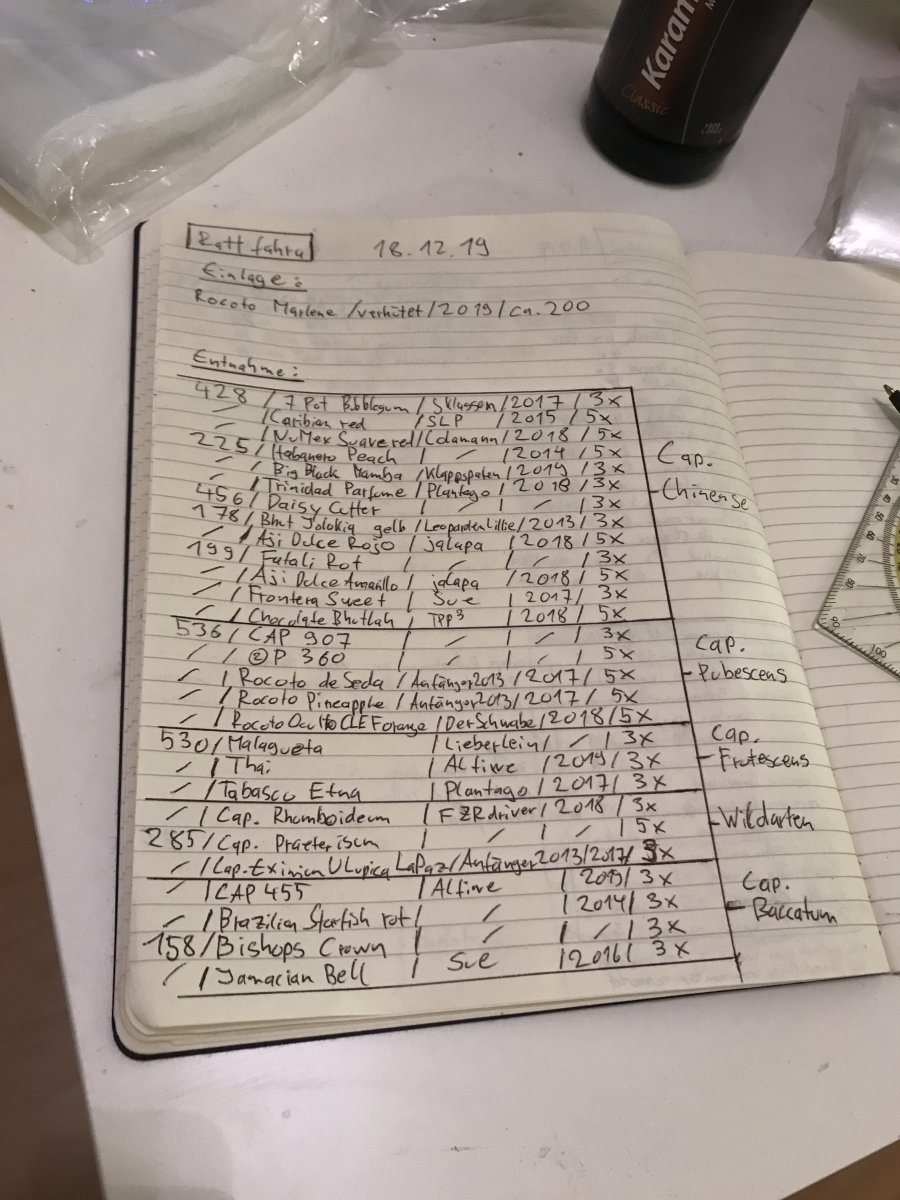 Karam
Classic
Rattfahra 18.12.19
Einlage:
Rocoto Marlene /verhütet/2019/ca.200
Entnahme:
428 / 7 Pot Bubblegum / Sklassen /2017 / 3x
〃 /Caribian red /SLP /2015 / 5x
〃 /NuMex Suave red/Colamann/2018 / 5x
225 /Habanero Peach / 〃 /2014 / 5x
〃 /Big Black Mamba /Klappspaten/2019 / 3x
〃 /Trinidad Parfume /Plantago /2018 / 3x
456 / Daisy Cutter / 〃 / 〃 / 3x
178/ Bhut Jolokia gelb /LeopardenLillie/2013/ 3x
〃 / Aji Dulce Rojo / jalapa /2018/ 5x
199 / Fatali Rot / 〃 / 〃 / 3x
〃 / Aji Dulce Amarillo / jalapa /2018/ 5x
〃 / Frontera Sweet / Sue /2017/ 3x
〃 / Chocolate Bhutlah / TPP³ /2018/ 5x
Cap.
Chinense
536/ CAP 907 / 〃 / 〃 / 3x
〃 / P 360 / 〃 / 〃 / 5x
〃 / Rocoto de Seda /Anfänger2013 /2017/ 5x
〃 / Rocoto Pineapple /Anfänger2013/2017/ 5x
〃 /Rocoto Oculto CLEF orange /DerSchwabe/2018/5x
Cap.
Pubescens
530/Malagueta /Lieberlein/ 〃 / 3x
〃 / Thai /Alfiwe /2019/ 3x
〃 /Tabasco Etna /Plantago /2017/ 3x
Cap.
Frutescens
〃 / Cap. Rhomboideum / FZRdriver/ 2018 / 3x
285/Cap. Praeterisum / 〃 / 〃 / 5x
〃 /Cap. Eximium Ulupica LaPaz/Anfänger2013/2017/ 3x
Wildarten
〃 /CAP 455 /Alfiwe /2019/ 3x
〃 /Brazilian Starfish rot/ 〃 /2014/ 3x
158/Bishops Crown / 〃 / 〃 / 3x
〃 /Jamacian Bell / Sue /2016/ 3x
Cap.
Baccatum